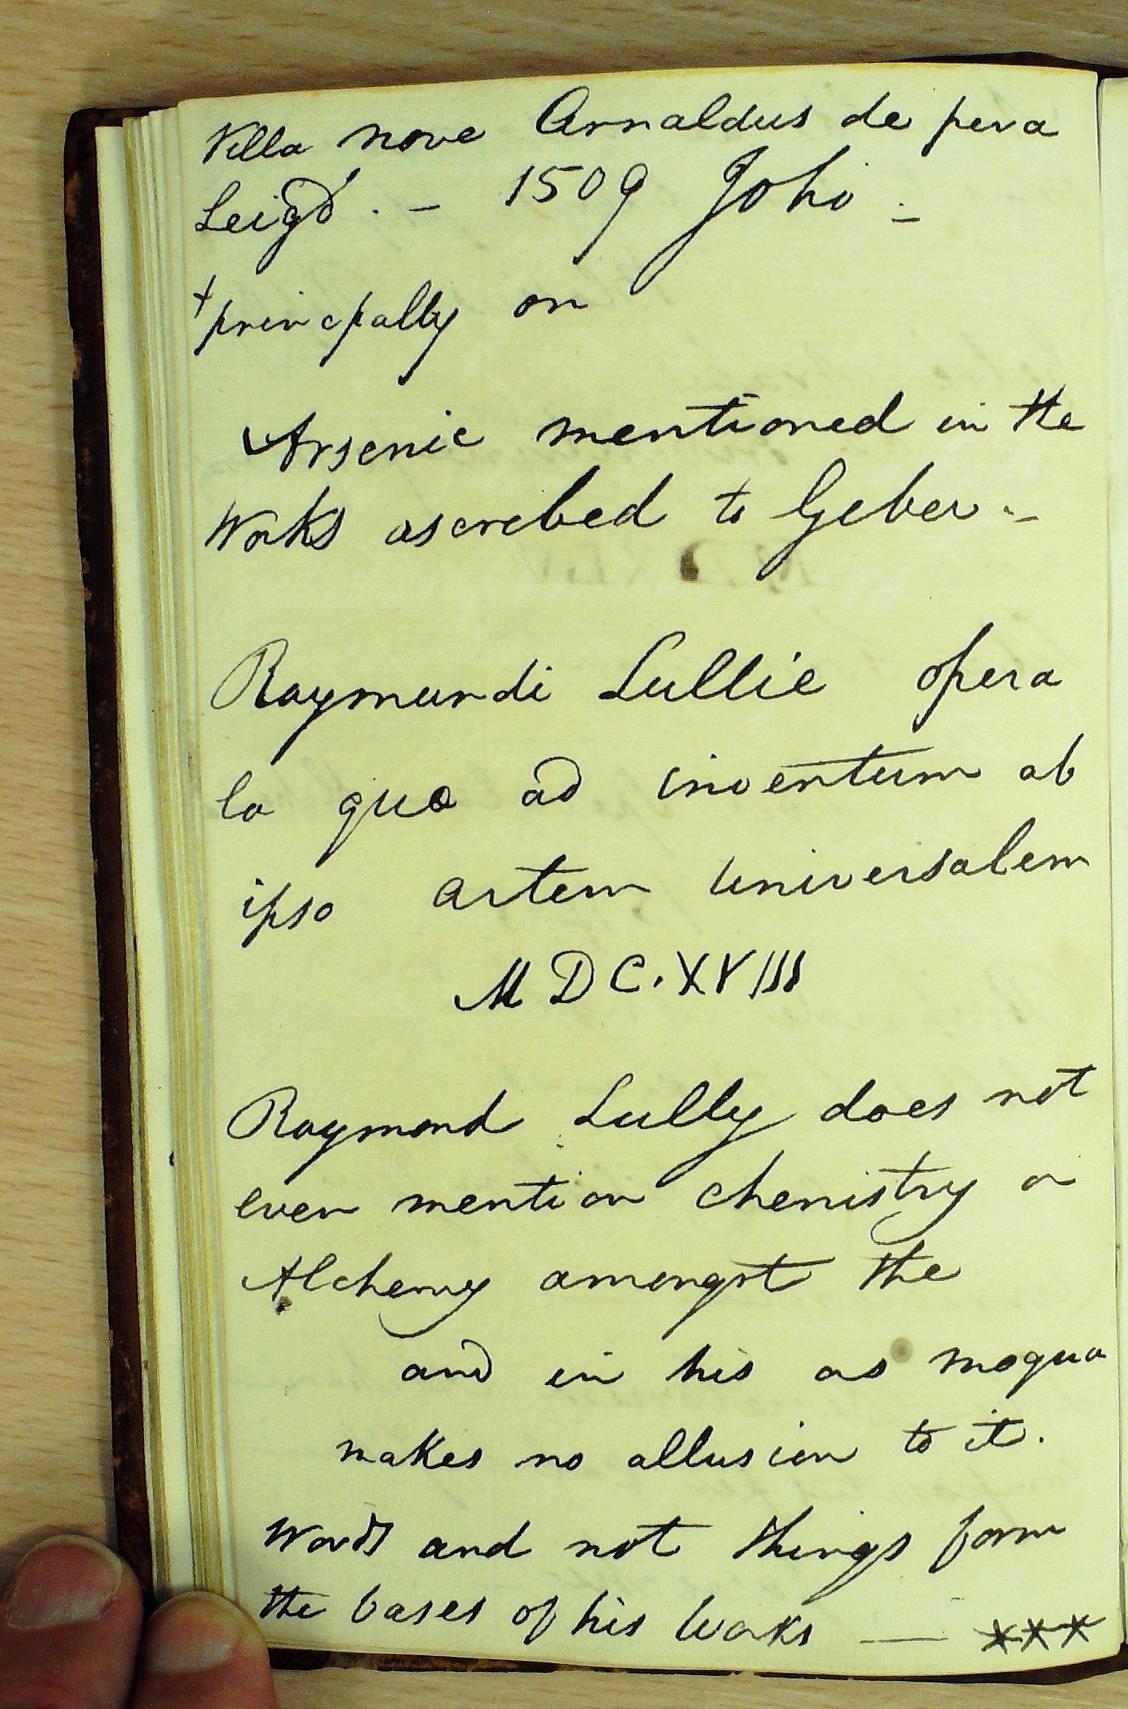 Villa nove Arnaldus de pera
Leigd . – 1509 Johi –
+principally on
Arsenic mentioned in the
Works ascrebed to Geber –
Raymundi Lullie opera
la quo ad inventum ab
ipso artem universalem
MDC.XVIII
Raymond Lully does not
even mention chemistry or
Alchemy amongst the
and in his as magua
makes no allusion to it.
Words and not things form
the bases of his works — ***